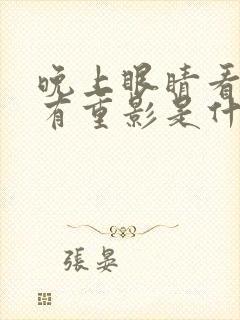 晚上眼睛看
有重影是什
張晏